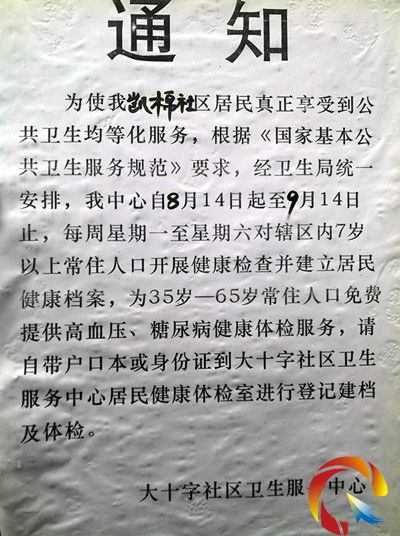 通知
为使我凯棉社区居民真正享受到公
共卫生均等化服务，根据《国家基本公
共卫生服务规范》要求，经卫生局统一
安排，我中心自8月14日起至9月14日
止，每周星期一至星期六对辖区内7岁
以上常住人口开展健康检查并建立居民
健康档案，为35岁—65岁常住人口免费
提供高血压、糖尿病健康体检服务，请
自带户口本或身份证到大十字社区卫生
服务中心居民健康体检室进行登记建档
及体检。
大十字社区卫生服务中心